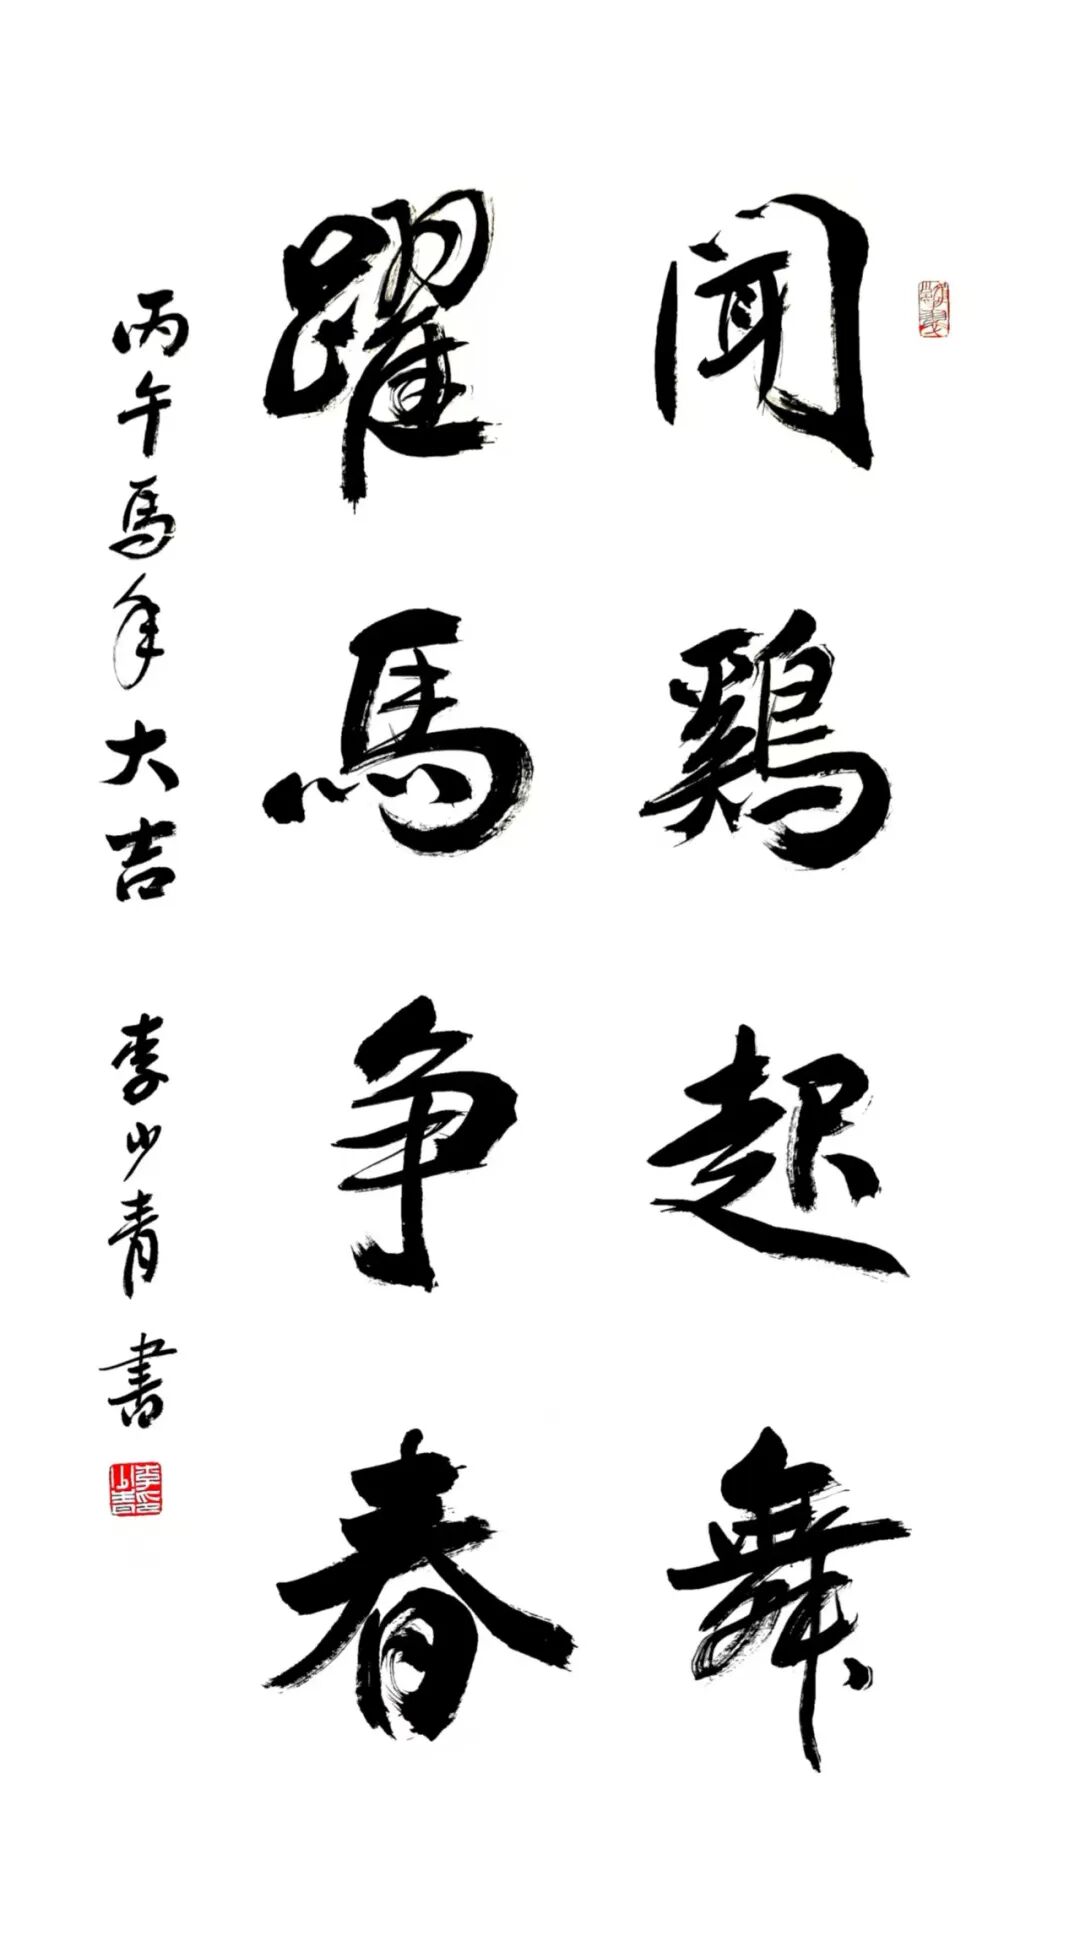 闻鷄起舞
躍馬争春
丙午馬年大吉 李少青書